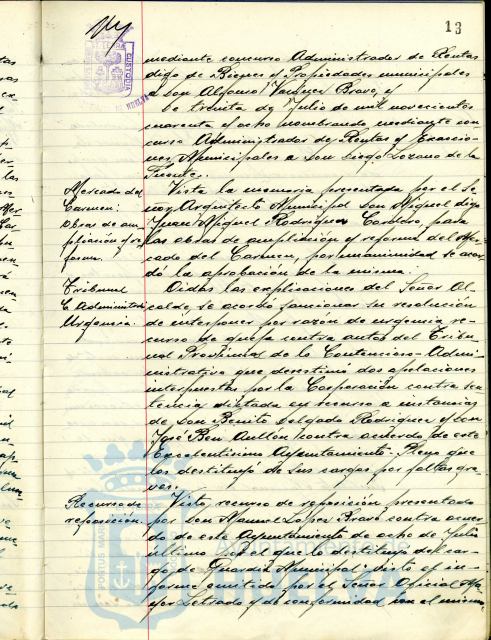 13
mediante concurso Administrador de Rentas
digo de Bienes y Propiedades municipales
a don Alfonso Bravo, y
de treinta de Julio de mil novecientos
cuarenta y ocho nombrando mediante con
curso Administrador de Rentas y Exaccio-
nes Municipales a don Diego Lozano de la
Fuente.
Mercado del
Carmen:
obras de am-
pliación y re-
forma.
Vista la memoria presentada por el Se
ñor Arquitecto Municipal don Miguel digo
Juan Miguel Rodríguez Cordero, para
las obras de ampliación y reforma del Mer
cado del Carmen, por unanimidad se acor
dó la aprobación de la misma.
Tribunal
C. Administrati
Urgencia
Oidas las explicaciones del Señor Al
calde se acordó sancionar su resolución
de interponer por razón de urgencia re-
curso de queja contra autos del Tribu-
nal Provincial de lo Contencioso-Admi-
nistrativo que desestimó dos apelaciones
interpuestas por la Corporación contra sen
tencia dictada en recurso a instancias
de don Benito Delgado Rodriguez y don
José Ben Aullon contra acuerdo de este
Excelentísimo Ayuntamiento Pleno que
los destituyó de sus cargos por faltas gra-
ves.
Recurso de
reposición.
Visto recurso de reposición presentado
por don Manuel López Bravo contra acuer
do de este Ayuntamiento de ocho de Julio
último por el que lo destituyó del car
go de Guardia Municipal; visto el in-
forme emitido por el Señor Oficial Ma
yor Letrado y de conformidad con el mismo,
CUSTODIA
HUELVA
PORTUS MARIS
Ayuntamiento de
HUELVA